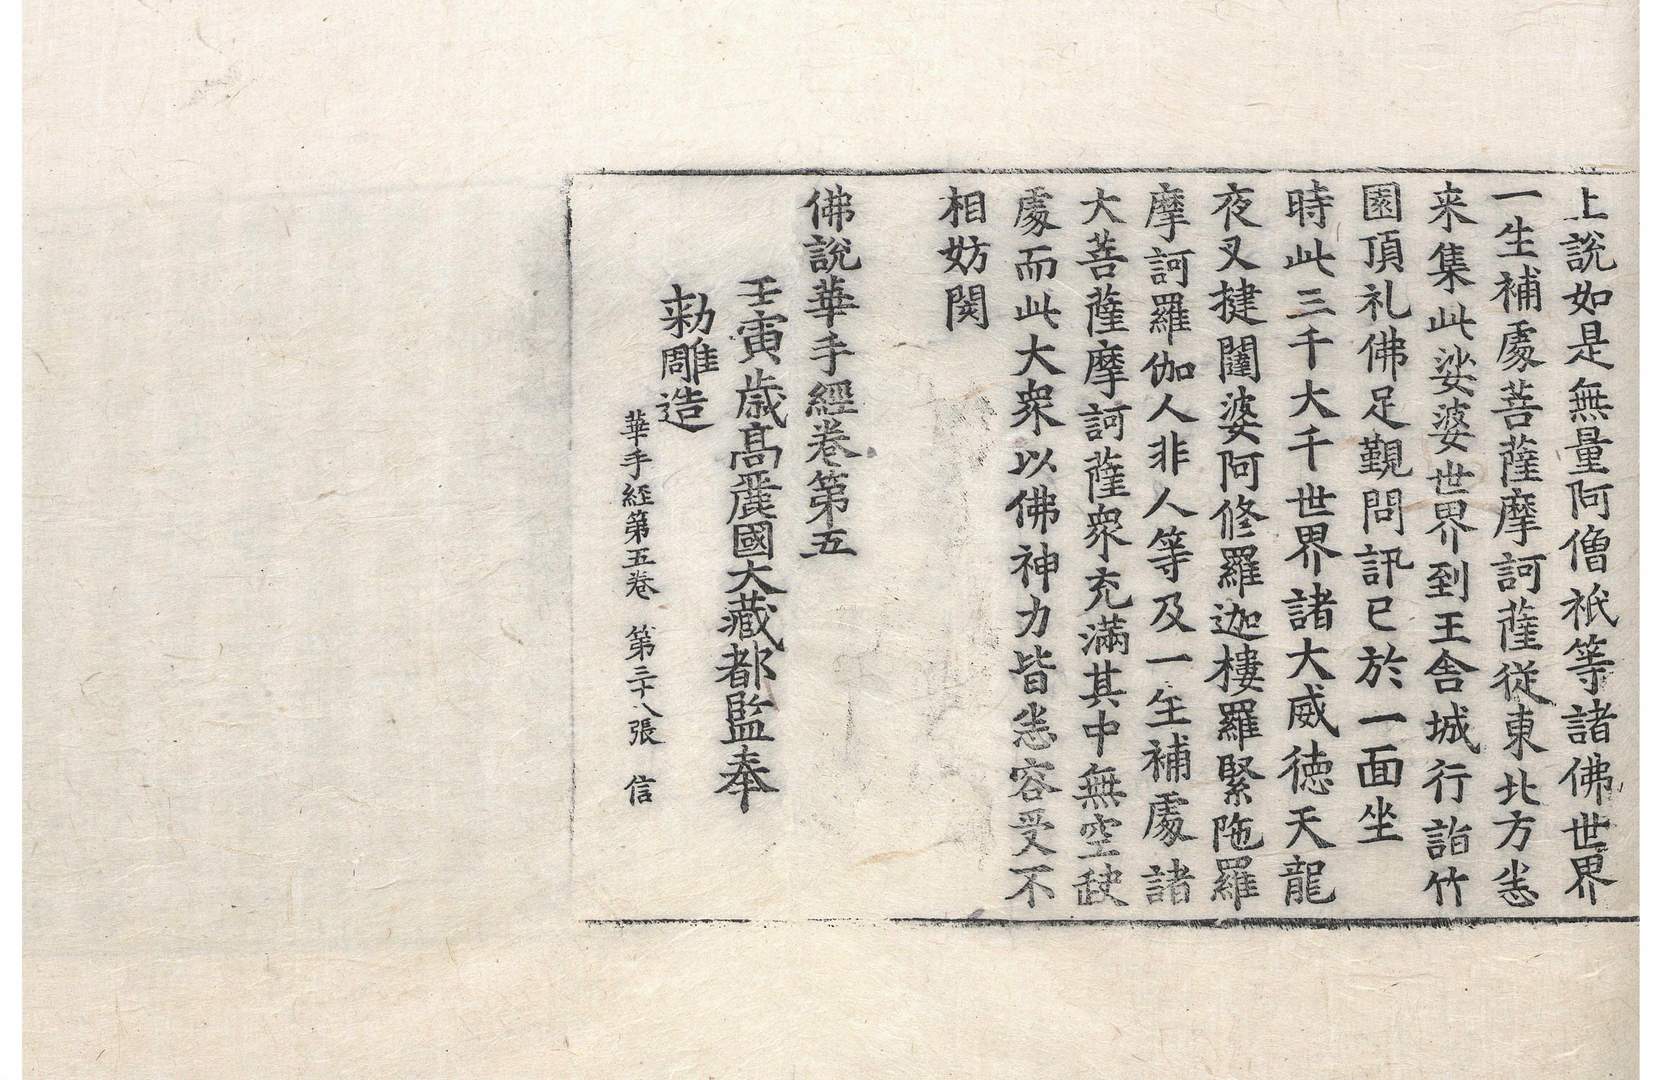 上說如是無量阿僧祇等諸佛世界
一生補處菩薩摩訶薩從東北方恙
来集此娑婆世界到王舍城行詣竹
園頂礼佛足覲問訊已於一面坐
時此三千大千世界諸大威德天龍
夜叉揵闥婆阿修羅迦樓羅緊陁羅
摩訶羅伽人非人等及一生補處諸
大菩薩摩訶薩衆充滿其中無空缺
處而此大衆以佛神力皆恙容受不
相妨閡
佛說華手經卷第五
壬寅歲高麗國大藏都監奉
勅雕造
華手經第五卷 第二十八張 信